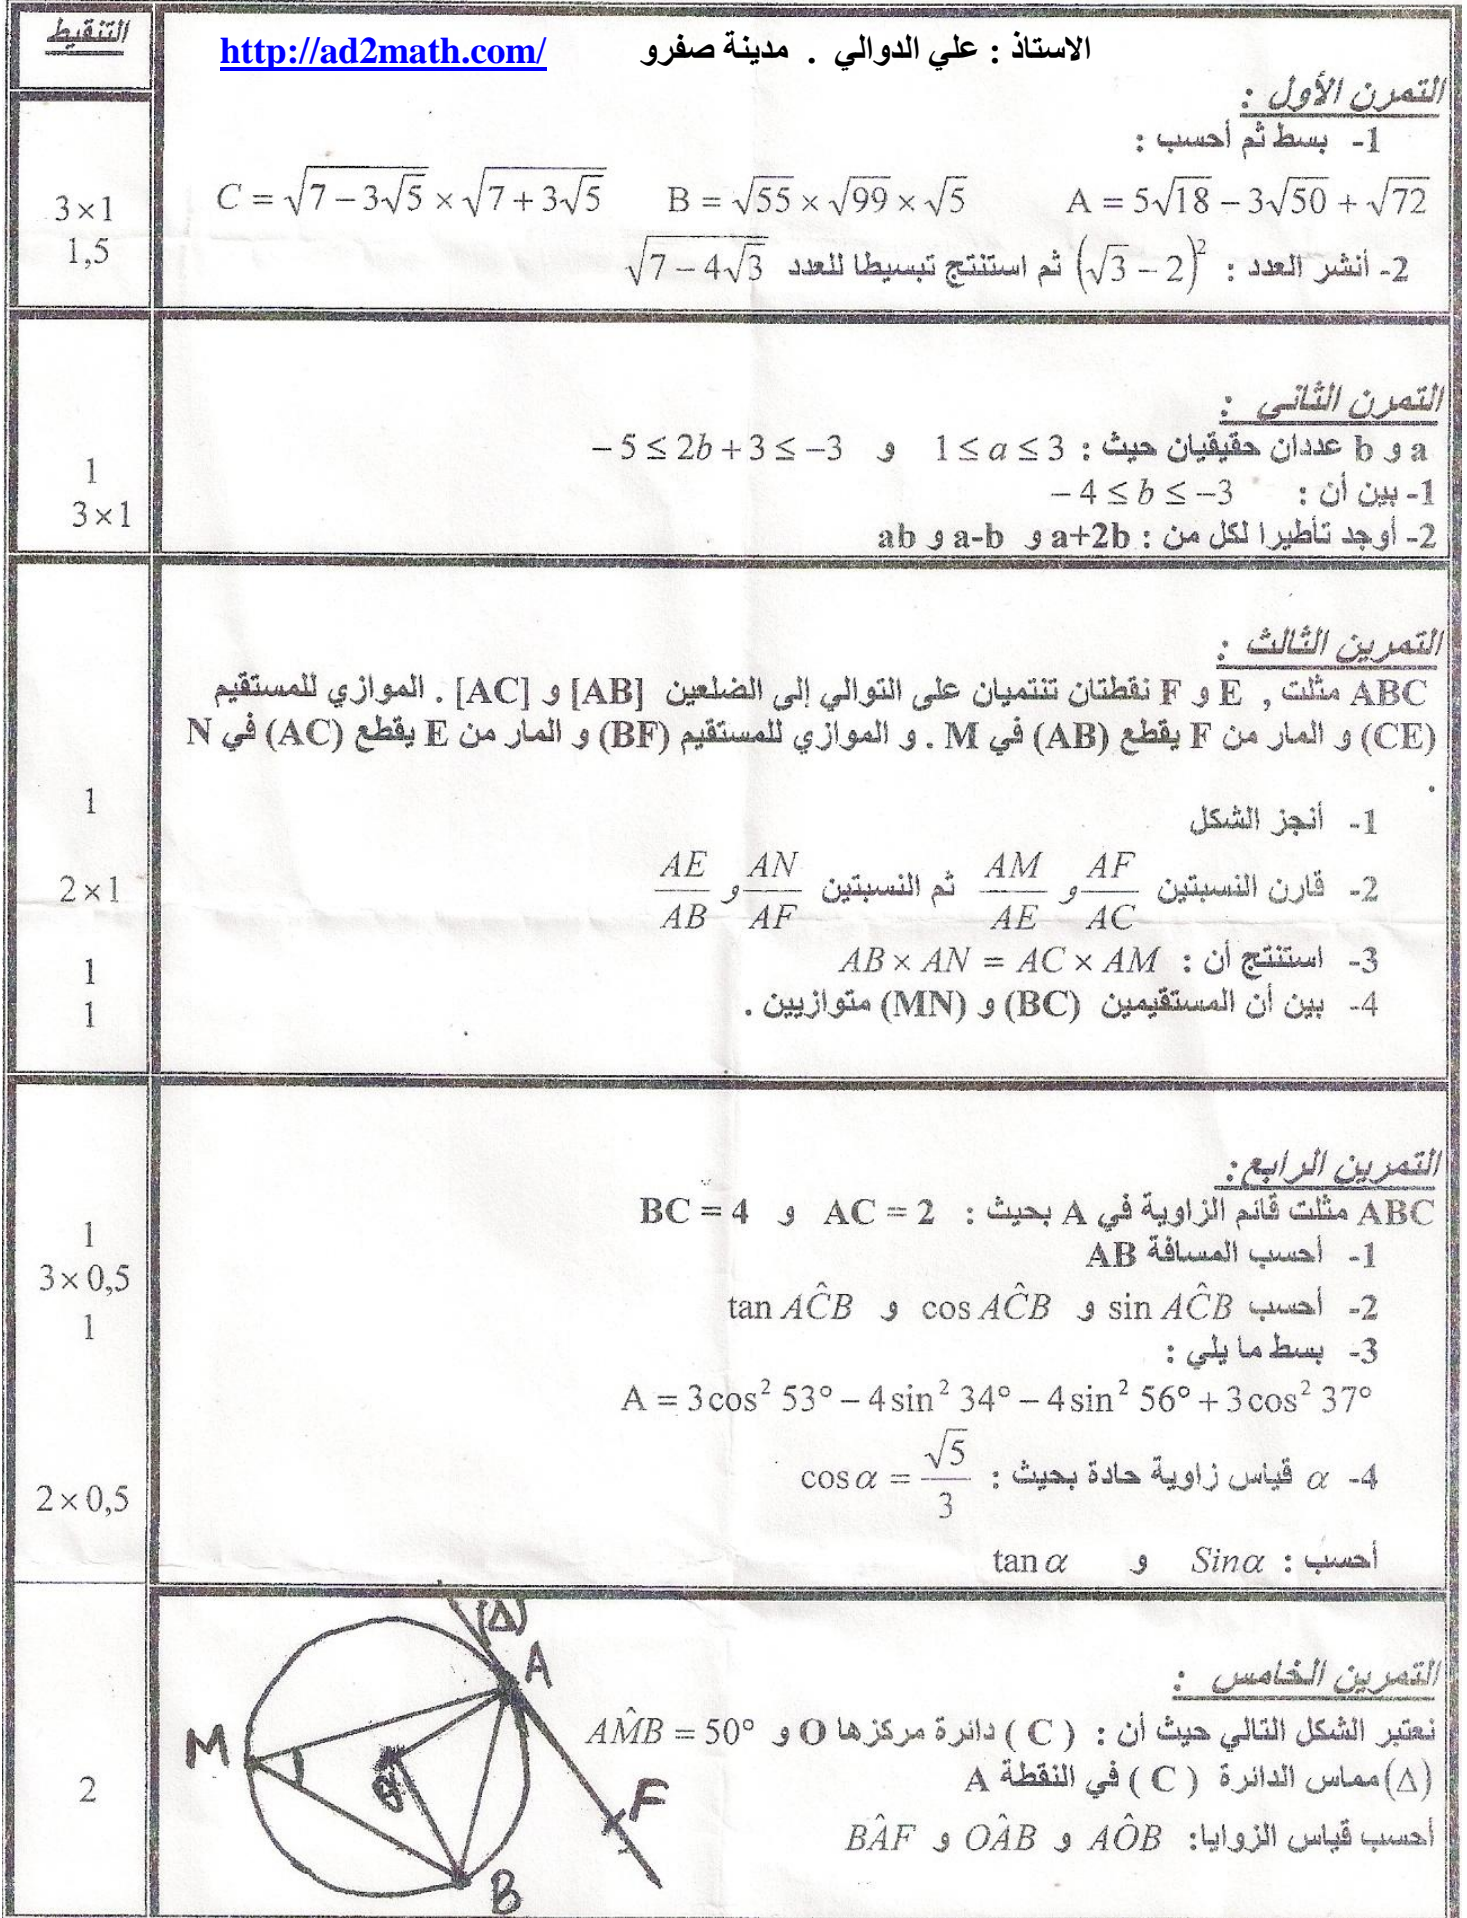 التنقيط
الاستاذ : علي الدوالي . مدينة صفرو http://ad2math.com/
التمرن الأول :
1- بسط ثم أحسب :
3×1
A = 5√18 − 3√50 + √72 B = √55 × √99 × √5 C = √(7 − 3√5) × √(7 + 3√5)
1,5
2- أنشر العدد : (√3 − 2)² ثم استنتج تبسيطا للعدد √(7 − 4√3)
التمرن الثاني :
a و b عددان حقيقيان حيث : 1 ≤ a ≤ 3 و −5 ≤ 2b + 3 ≤ −3
1
1- بين أن : −4 ≤ b ≤ −3
3×1
2- أوجد تأطيرا لكل من : a+2b و a-b و ab
التمرين الثالث :
ABC مثلت , E و F نقطتان تنتميان على التوالي إلى الضلعين [AB] و [AC] . الموازي للمستقيم
(CE) و المار من F يقطع (AB) في M . و الموازي للمستقيم (BF) و المار من E يقطع (AC) في N
.
1
1- أنجز الشكل
2×1
2- قارن النسبتين AF/AC و AM/AE ثم النسبتين AN/AF و AE/AB
1
3- استنتج أن : AB × AN = AC × AM
1
4- بين أن المستقيمين (BC) و (MN) متوازيين .
التمرين الرابع :
ABC مثلت قائم الزاوية في A بحيث : AC = 2 و BC = 4
1
1- أحسب المسافة AB
3×0,5
2- أحسب sin AĈB و cos AĈB و tan AĈB
1
3- بسط ما يلي :
A = 3cos² 53° − 4sin² 34° − 4sin² 56° + 3cos² 37°
2×0,5
4- α قياس زاوية حادة بحيث : cos α = √5/3
أحسب : Sinα و tan α
التمرين الخامس :
نعتبر الشكل التالي حيث أن : ( C ) دائرة مركزها O و AM̂B = 50°
2
(Δ) مماس الدائرة ( C ) في النقطة A
أحسب قياس الزوايا: AÔB و OÂB و BÂF
(Δ)
A
M
O
F
B